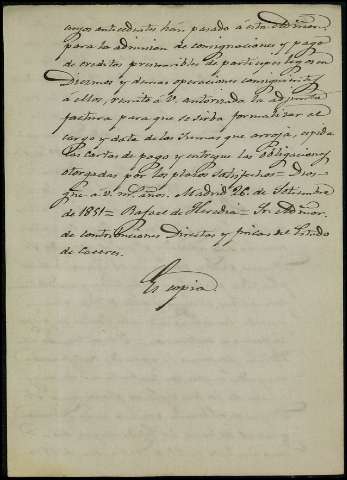 cuyos antecedentes han pasado á esta Admon.
para la admision de consignaciones y pago
de creditos procurables de participes legos en
Diezmos y demas operaciones consiguientes
á ellos, remito á V. autorizada la adjunta
factura para que se sirba formalizar el
cargo y data de las sumas que arroja, espida
las cartas de pago y entregue las obligaciones
otorgadas por los plazos satisfechos = Dios
gue. á V. ms. años. Madrid 26 de Setiembre
de 1851 = Rafael de Heredia = Sr. Admor.
de contribuciones Directas y fincas del Estado
de Caceres.
Es copia.